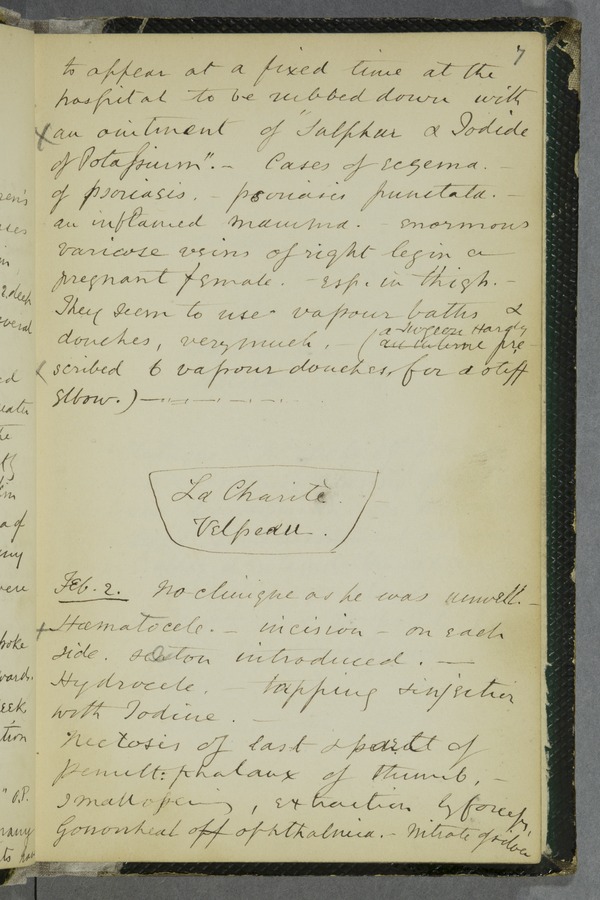 7
to appear at a fixed time at the
hospital to be rubbed down with
x an ointment of "Sulphur & Iodide
of Potassium". – Cases of eczema. –
of psoriasis. – psoriasis punctata. –
an inflamed mamma. – enormous
varicose veins of right leg in a
pregnant female. – esp. in thigh. –
They seem to use vapour baths &
douches, very much. – (a surgeon Hardy
an interne pre-
x scribed 6 vapour douches, for a stiff
elbow.) –
La Charitè
Velpeau.
Feb. 2. No clinique as he was unwell. –
x Hæmatocele. – incision – on each
side. seton introduced. –
Hydrocele. – tapping & injection
with Iodine. –
Necrosis of last & part of
penult: phalanx of thumb. –
small opening, extraction by forceps.
Gonorrheal off ophthalmia. – Nitrate of silver